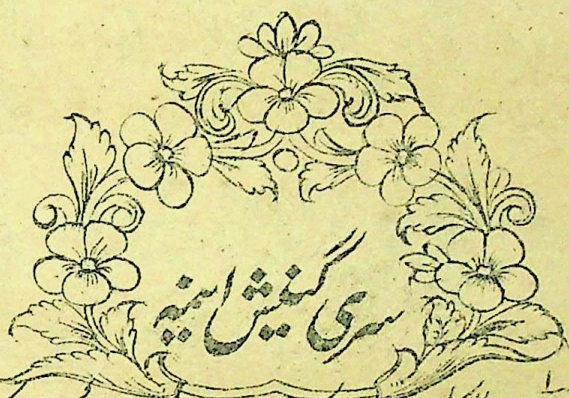 سری گنیش اینمہ